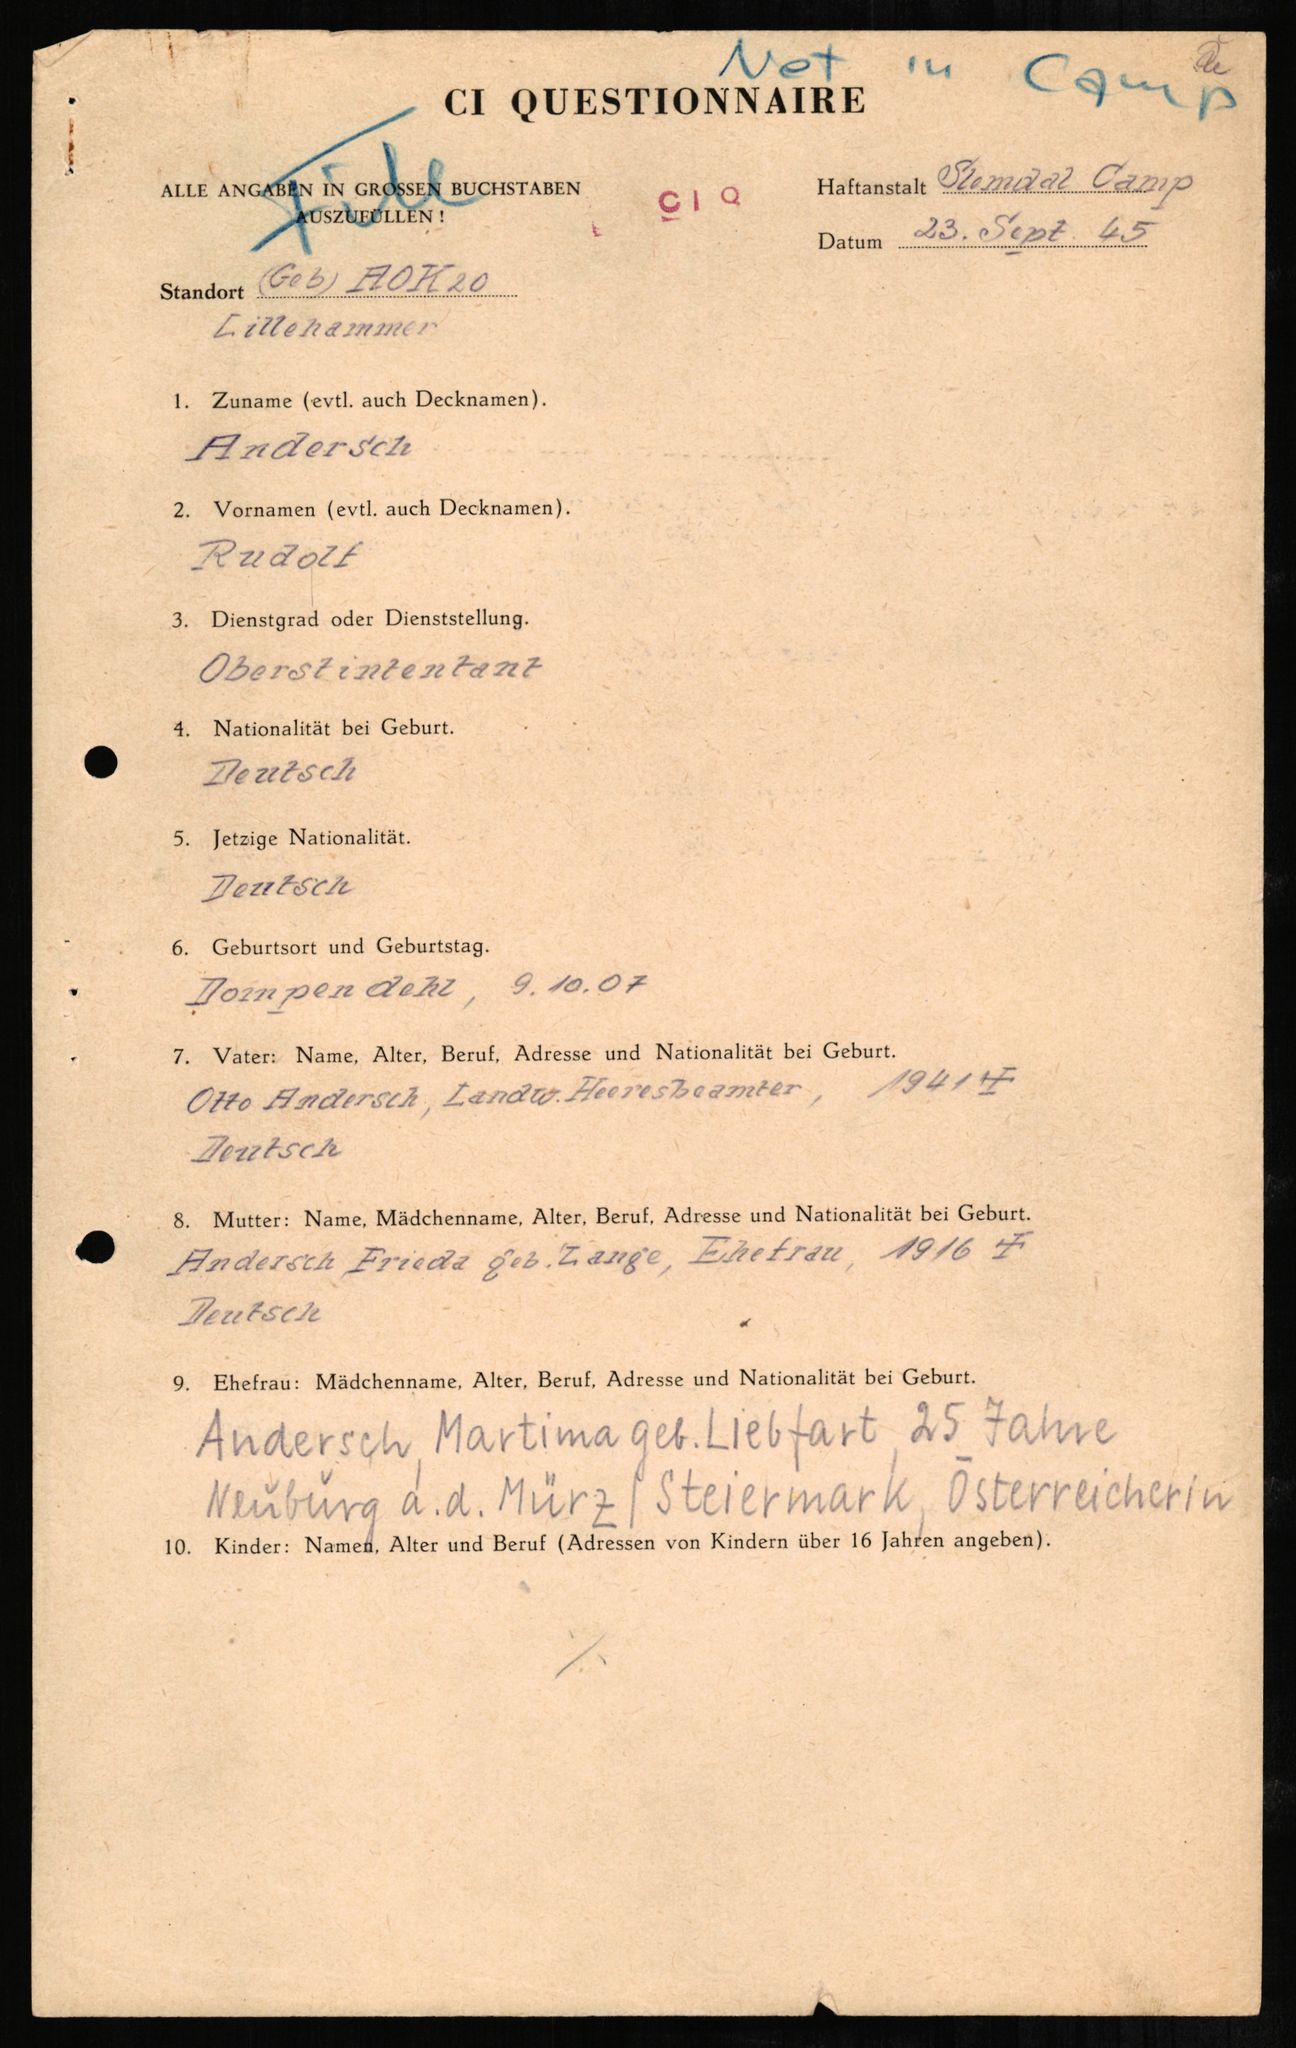 Not in Camp
CI QUESTIONNAIRE
ALLE ANGABEN IN GROSSEN BUCHSTABEN
AUSZUFÜLLEN!
File
CIQ
Haftanstalt Slemdal Camp
Datum 23. Sept. 45
Standort (Geb) AOK 20
Lillehammer
1. Zuname (evtl. auch Decknamen).
Andersch
2. Vornamen (evtl. auch Decknamen).
Rudolf
3. Dienstgrad oder Dienststellung.
Oberstintentant
4. Nationalität bei Geburt.
Deutsch
5. Jetzige Nationalität.
Deutsch
6. Geburtsort und Geburtstag.
Dompendehl, 9.10.07
7. Vater: Name, Alter, Beruf, Adresse und Nationalität bei Geburt.
Otto Andersch, Landw. Heeresbeamter, 1941 ‡
Deutsch
8. Mutter: Name, Mädchenname, Alter, Beruf, Adresse und Nationalität bei Geburt.
Andersch Frieda geb. Lange, Ehefrau, 1916 ‡
Deutsch
9. Ehefrau: Mädchenname, Alter, Beruf, Adresse und Nationalität bei Geburt.
Andersch, Martima geb. Liebfart, 25 Jahre
Neuburg a.d. Mürz / Steiermark, Österreicherin
10. Kinder: Namen, Alter und Beruf (Adressen von Kindern über 16 Jahren angeben).
./.